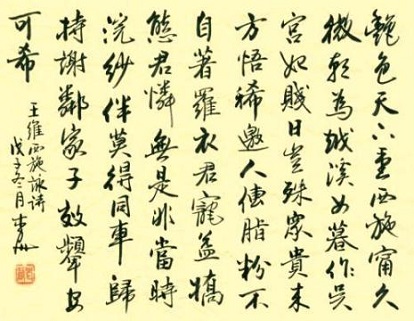 艷色天下重西施甯久
微朝为越溪女暮作吴
宫妃賤日豈殊眾貴来
方悟稀邀人傅脂粉不
自著羅衣君寵益嬌
態君憐無是非當時
浣紗伴莫得同車歸
持謝鄰家子效顰安
可希
王維西施詠詩
戊子冬月